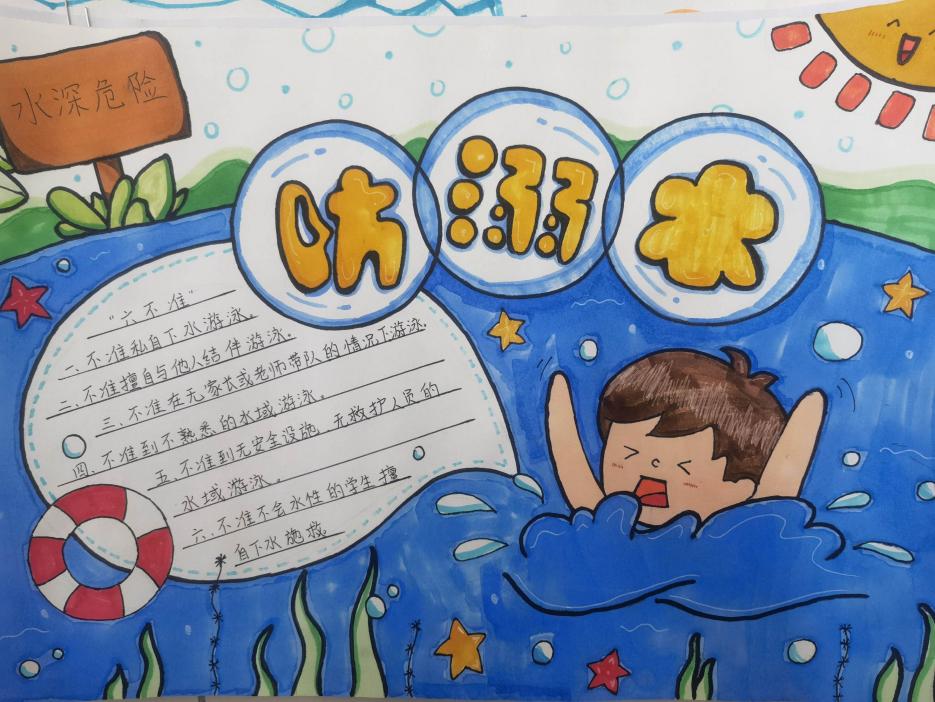 水深危险
防溺水
“六不准”
一、不准私自下水游泳。
二、不准擅自与他人结伴游泳。
三、不准在无家长或老师带队的情况下游泳.
四、不准到不熟悉的水域游泳。
五、不准到无安全设施、无救护人员的
水域游泳。
六、不准不会水性的学生擅
自下水施救